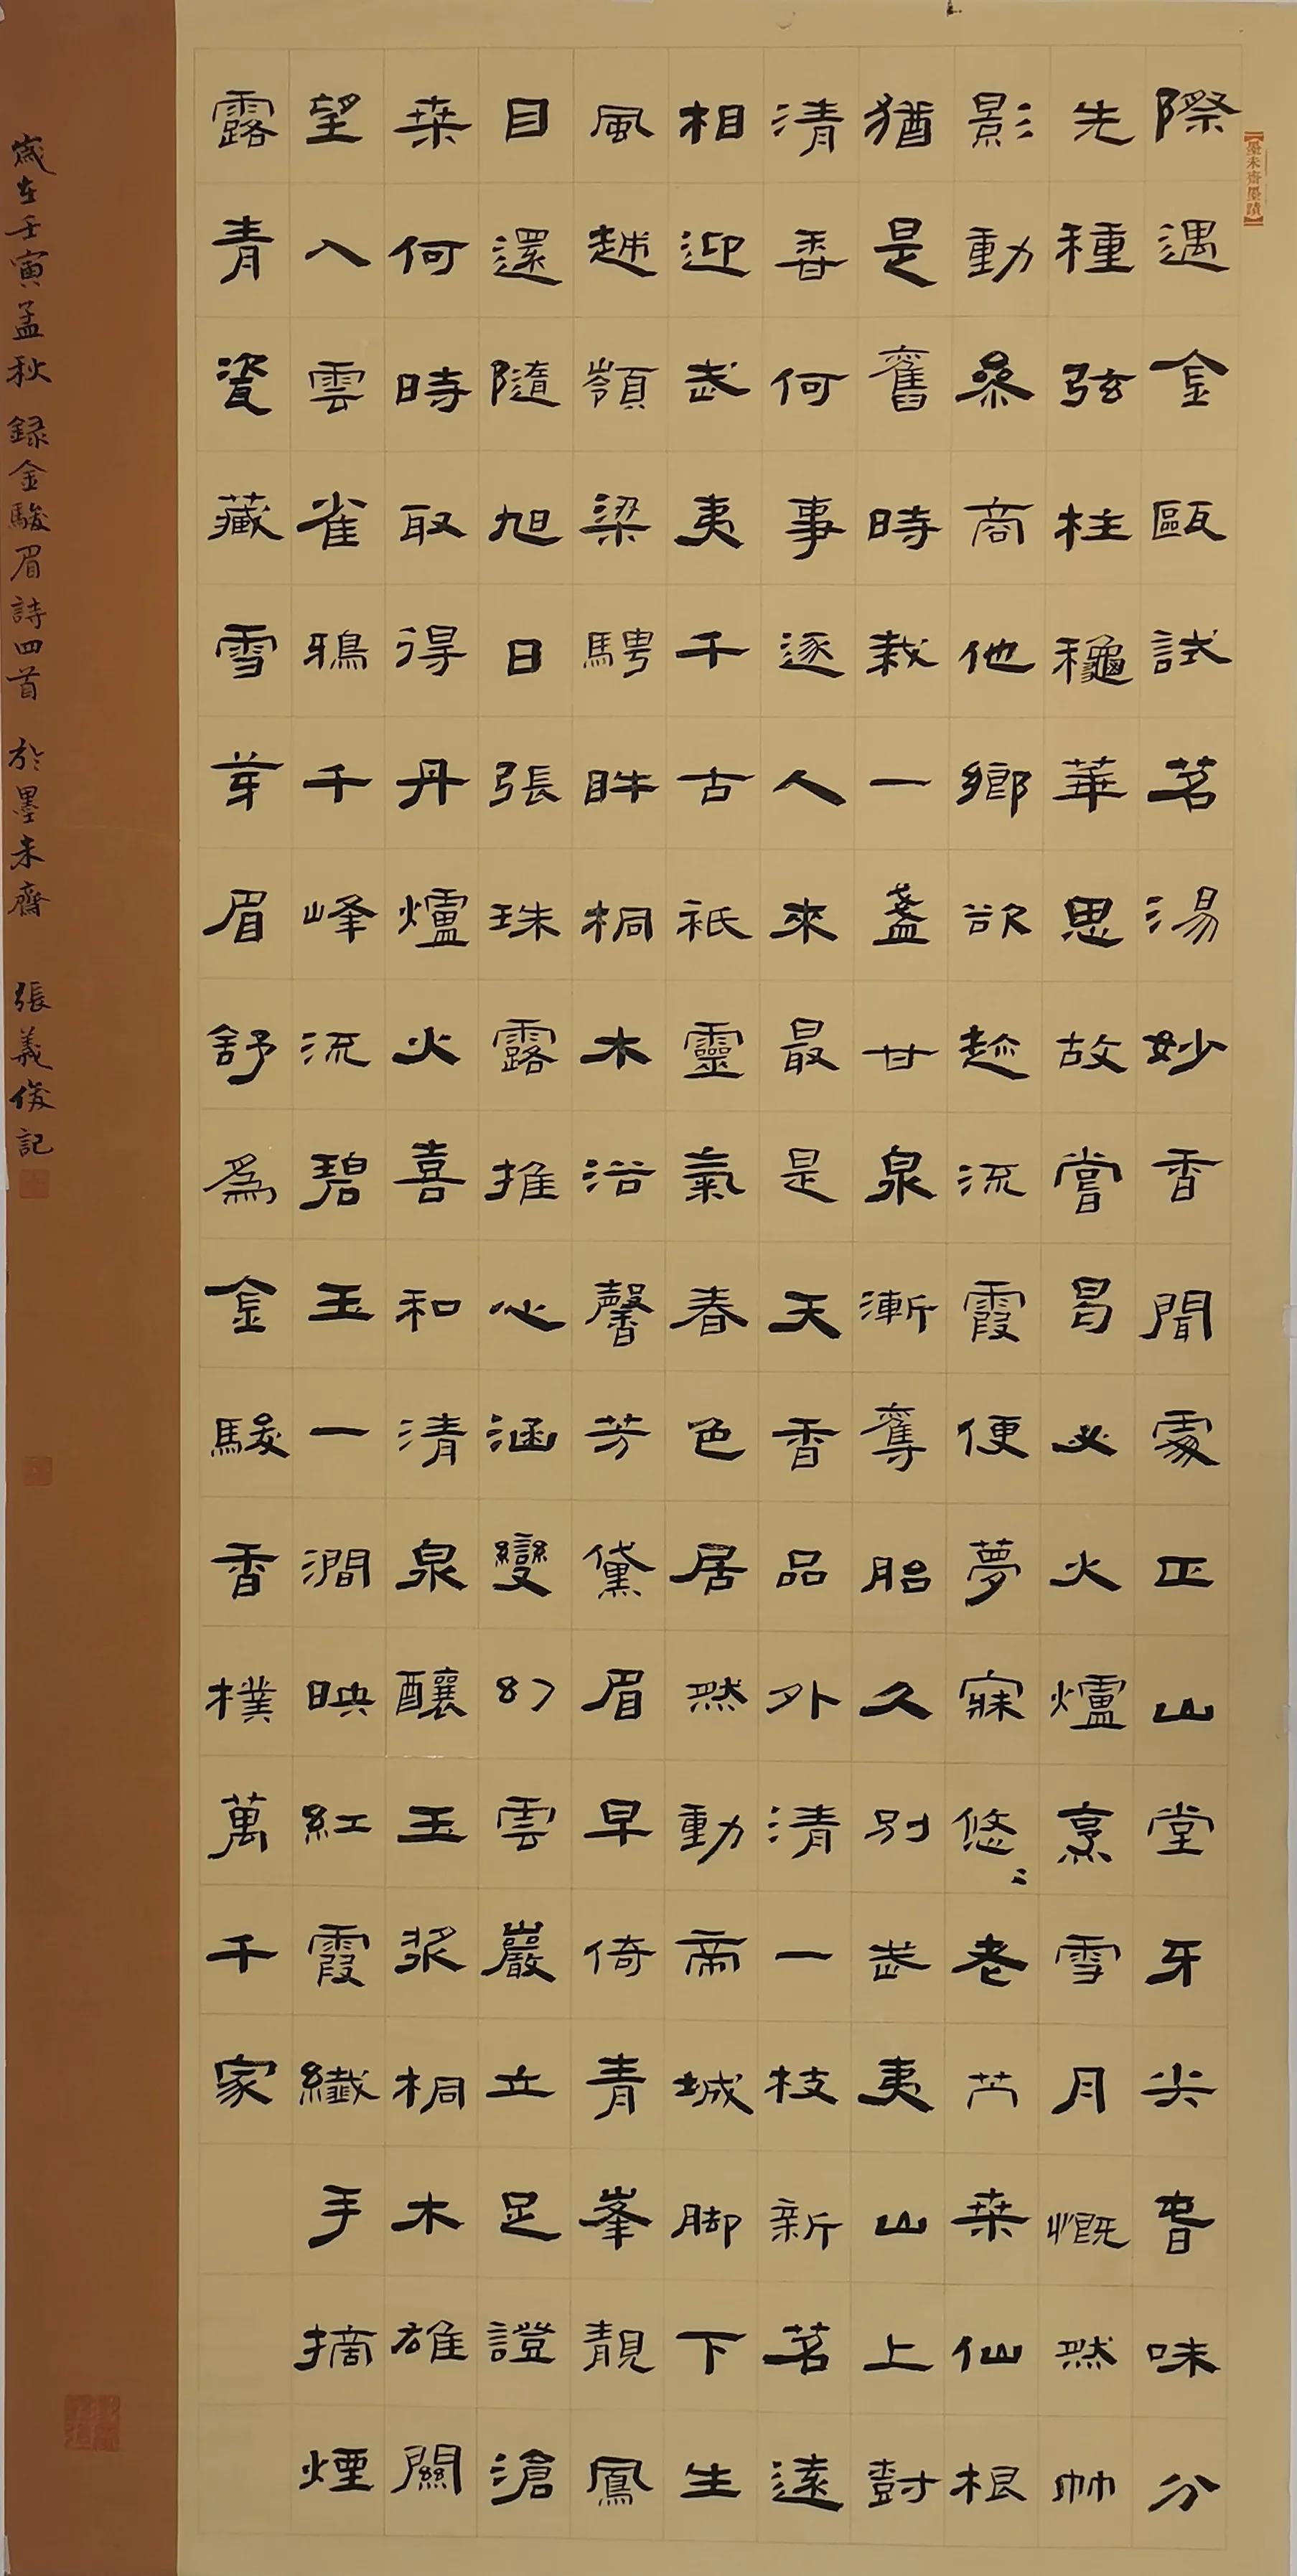 墨未齋墨蹟
際遇金甌試茗湯妙香聞處正山堂牙尖旾味分
先種弦柱龝華思故嘗曷必火爐烹雪月慨然
影動參商他鄉欲趁流霞便夢寐悠〻老桑仙根
猶是舊時栽一盞甘泉漸奪胎久別武夷山上對
清香何事逐人來最是天香品外清一枝新茗遠
相迎武夷千古祇靈氣春色居然動帝城脚下生
風越嶺梁騁眸桐木浴馨芳黛眉早倚青峯靚鳳
目還隨旭日張珠露推心涵變幻雲巖立足證滄
桑何時取得丹爐火喜和清泉釀玉漿桐木雄關
望入雲雀鴉千峰流碧玉一澗映紅霞纖手摘煙
露青瓷藏雪芽眉舒為金駿香樸萬千家
歲在壬寅孟秋錄金駿眉詩四首於墨未齋張義俊記